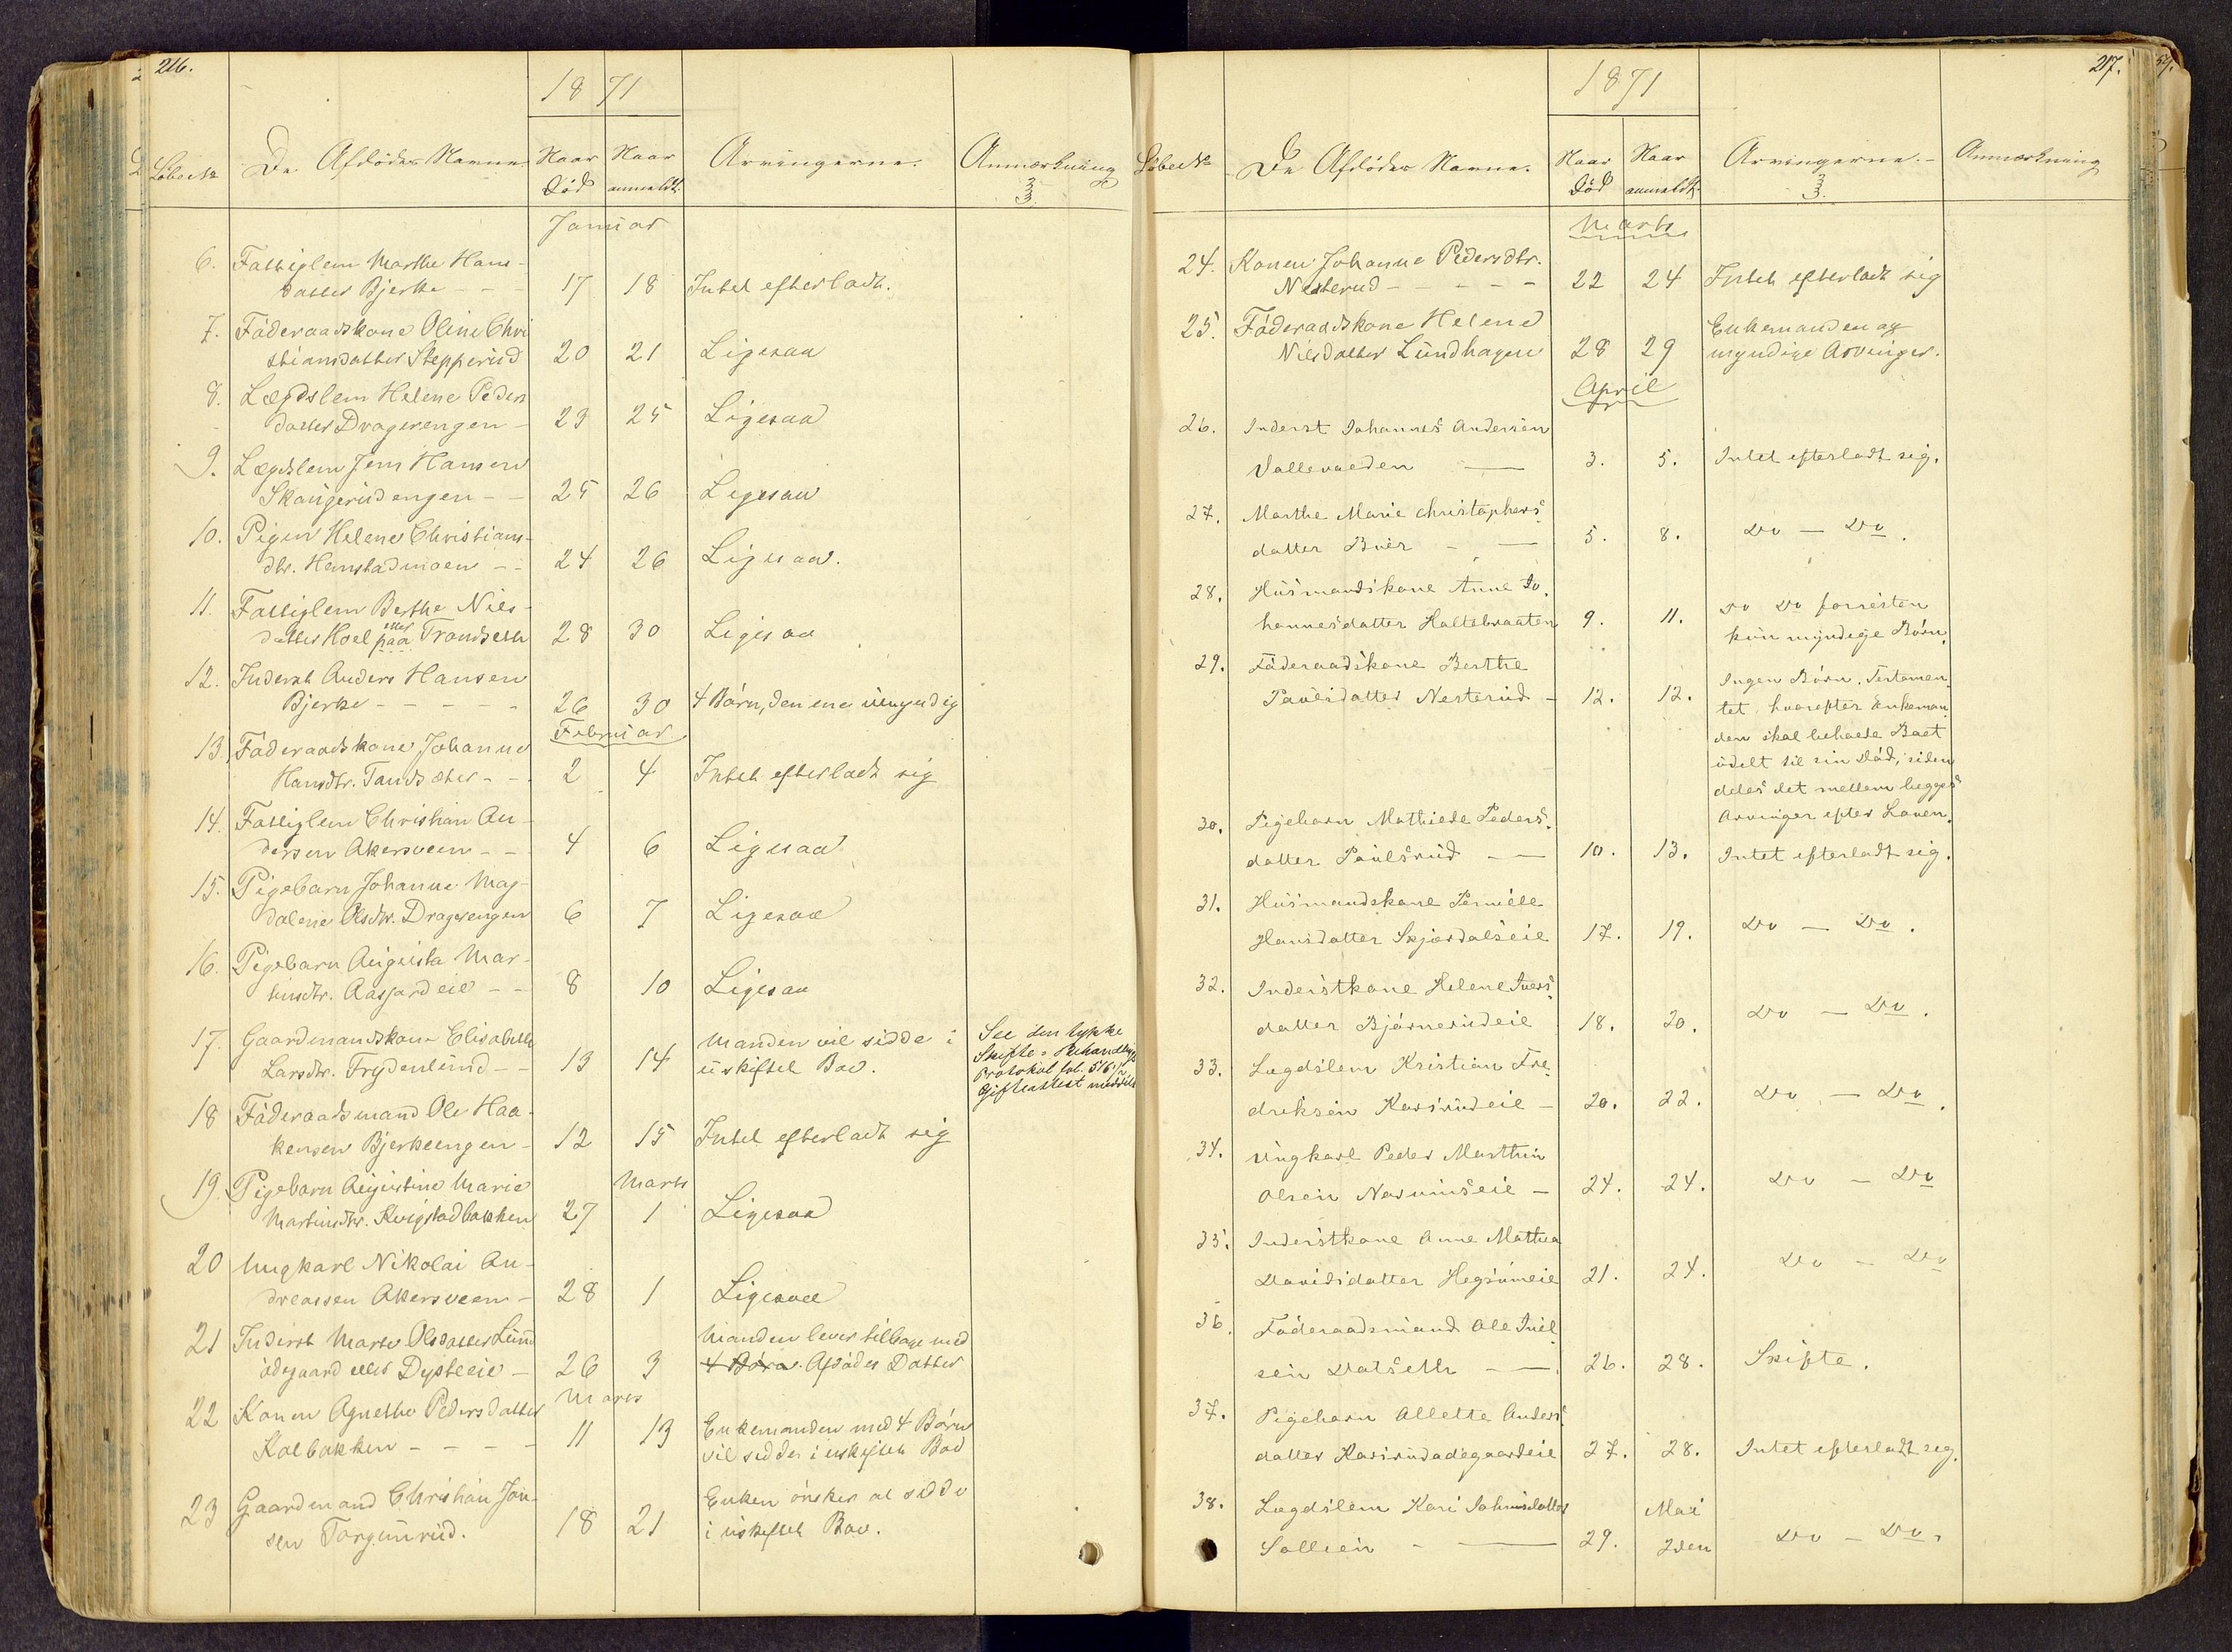 216.
1871
Löbe No
De Afdödes Navne
Naar Død
Naar anmeldt.
Arvingerne.
Anmærkning
Januar
6. Fattiglem Marthe Hans-
datter Bjerke - - - 17 18 Intet efterladt.
7. Föderaadskone Oline Chri
stiansdatter Stepperud 20 21 Ligesaa
8. Lægdslem Helene Peders
datter Dragerengen - 23 25 Ligesaa
9. Lægdslem Jens Hansen
Skougerudengen - - 25 26 Ligesaa
10. Pigen Helene Christians-
dtr. Hemstadmoen - - 24 26 Ligesaa.
11. Fattiglem Berthe Niels-
datter Hoel paa eller Trondseth 28 30 Ligesaa
12. Inderst Anders Hansen
Bjerke - - - - - 26 30 4 Børn, den ene umyndig
Februar
13. Föderaadskone Johanne
Hansdtr. Tandsæter - - 2 4 Intet efterladt sig
14. Fattiglem Christian An-
dersen Akersveen - - 4 6 Ligesaa
15. Pigebarn Johanne Mag-
dalene Olsdtr. Dragerengen 6 7 Ligesaa
16. Pigebarn Augusta Mar-
tinsdtr. Aasgardeie - - 8 10 Ligesaa
17. Gaardmandskone Elisabeth
Larsdtr. Frydenlund - - 13 14 Manden vil sidde i
uskiftet Bo.
See den tykke
Skifte-Behandlings
Protokol fol. 516.
Gifteattest meddelt
18 Föderaadsmand Ole Haa-
kensen Bjerkeengen - 12 15 Intet efterladt sig
Marts
19. Pigebarn Augustine Marie
Martinsdtr. Kvigstadbakken 27 1 Ligesaa
20 Ungkarl Nikolai An-
dreassen Akersveen - 28 1 Ligesaa
21 Inderst Marte Olsdatter Lund
ödegaard eller Dysteeie - 26 3 Manden lever tilbage med
4 Börn. Afdödes Datter
Marts
22 Konen Agnethe Pedersdatter
Kolbakken - - - - 11 13 Enkemanden med 4 Børn
vil sidde i uskiftet Bo
23 Gaardmand Christian Jon-
sen Torgunrud. 18 21 Enken ønsker at sidde
i uskiftet Bo.
217.
1871
Löbe No
De Afdödes Navne.
Naar Død
Naar anmeldt.
Arvingerne.-
Anmærkning
Marts
24. Konen Johanne Pedersdtr.
Nesterud - - - - - 22 24 Intet efterladt sig
25. Föderaadskone Helene
Nilsdatter Lundhagen 28 29 Enkemanden og
myndige Arvinger.
April
26. Inderst Johannes Andersen
Vallevaeden - 3. 5. Intet efterladt sig.
27. Marthe Marie Christophers-
datter Buer - - 5. 8. Do - Do.
28. Husmandskone Anne Jo-
hannesdatter Haltebraaten 9. 11. Do Do forresten
kun myndige Børn.
29. Föderaadskone Berthe
Paulsdatter Nesterud - 12. 12. Ingen Børn. Testamen-
tet hvorefter Enkeman-
den skal beholde Boet
udelt til sin Død, siden
deles det mellem begges
Arvinger efter Loven.
30. Pigebarn Mathilde Peders-
datter Paulsrud - - 10. 13. Intet efterladt sig.
31. Husmandskone Pernille
Hansdatter Skjærdalseie 17. 19. Do - Do.
32. Inderstkone Helene Ivers-
datter Bjørnerudeie 18. 20. Do - Do.
33. Lægdslem Kristian Fre-
driksen Karsrudeie - 20. 22. Do - Do.
34. Ungkarl Peder Marthin
Olsen Narumseie - 24. 24. Do - Do
35. Inderstkone Anne Mathea
Davidsdatter Hegsumeie 21. 24. Do - Do
36. Föderaadsmand Ole Juel-
sen Dalseth - 26. 28. Skifte.
37. Pigebarn Allette Anders-
datter Karsrudødegaardeie 27. 28. Intet efterladt sig.
38. Lægdslem Kari Johnsdatter
Mai
Sollien - 29. 2den Do - Do.